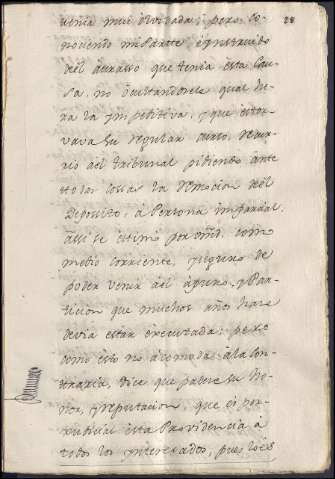 28
venia mui dilatada; pero, co-
nociendo mi Parte, è instruido
del atrasso que tenia esta Cau-
sa, no ocultandosele qual he-
ra la impeditiva, y que estor-
vava su regular curso,
rio al tribunal pidiendo ante
todas cosas la remocion del
Deposito, à Persona imparcial.
Assi se estimò por omd. como
medio corriente, y seguro de
poder venir al ajuste, y Par-
ticion que muchos años hace
devia estar executada: pero
como esto no acomoda à la con-
traria, dice que padece su ho-
nor, y reputacion, que es per-
judicial esta Providencia à
todos los interesados, pues